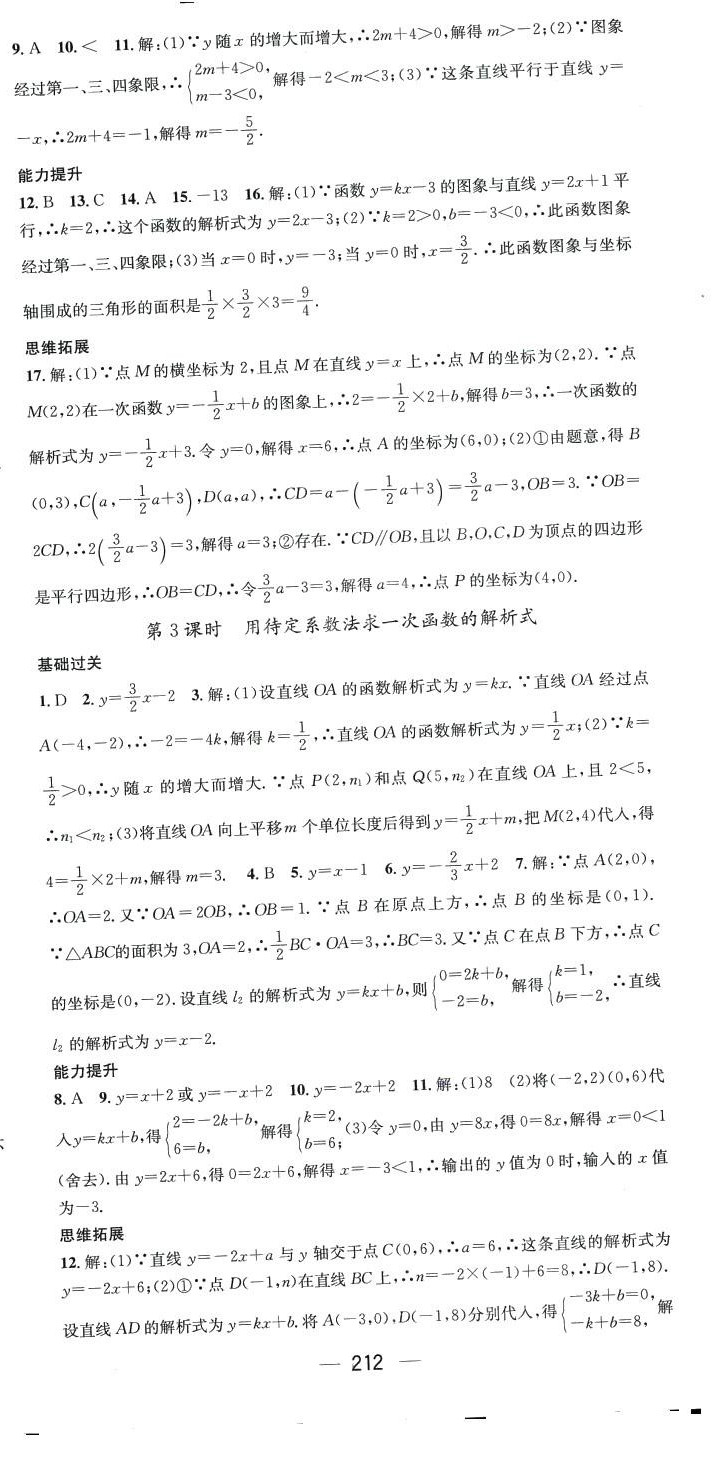 9. A 10. < 11. 解:(1)∵y随x的增大而增大,∴2m+4>0,解得 m>-2;(2)∵图象
经过第一、三、四象限,∴{2m+4>0, m-3<0, 解得-2<m<3;(3)∵这条直线平行于直线 y=
-x,∴2m+4=-1,解得 m=-5/2.
能力提升
12. B 13. C 14. A 15. -13 16. 解:(1)∵函数 y=kx-3 的图象与直线 y=2x+1 平
行,∴k=2,∴这个函数的解析式为 y=2x-3;(2)∵k=2>0,b=-3<0,∴此函数图象
经过第一、三、四象限;(3)当 x=0 时,y=-3;当 y=0 时,x=3/2.∴此函数图象与坐标
轴围成的三角形的面积是1/2×3/2×3=9/4.
思维拓展
17. 解:(1)∵点 M 的横坐标为 2,且点 M 在直线 y=x 上,∴点 M 的坐标为(2,2).∵点
M(2,2)在一次函数 y=-1/2x+b 的图象上,∴2=-1/2×2+b,解得 b=3,∴一次函数的
解析式为 y=-1/2x+3.令 y=0,解得 x=6,∴点 A 的坐标为(6,0);(2)①由题意,得 B
(0,3),C(a,-1/2a+3),D(a,a),∴CD=a-(-1/2a+3)=3/2a-3,OB=3.∵OB=
2CD,∴2(3/2a-3)=3,解得 a=3;②存在.∵CD∥OB,且以 B,O,C,D 为顶点的四边形
是平行四边形,∴OB=CD,∴令3/2a-3=3,解得 a=4,∴点 P 的坐标为(4,0).
第 3 课时 用待定系数法求一次函数的解析式
基础过关
1. D 2. y=3/2x-2 3. 解:(1)设直线 OA 的函数解析式为 y=kx.∵直线 OA 经过点
A(-4,-2),∴-2=-4k,解得 k=1/2,∴直线 OA 的函数解析式为 y=1/2x;(2)∵k=
1/2>0,∴y 随 x 的增大而增大.∵点 P(2,n₁)和点 Q(5,n₂)在直线 OA 上,且 2<5,
∴n₁<n₂;(3)将直线 OA 向上平移 m 个单位长度后得到 y=1/2x+m,把 M(2,4)代入,得
4=1/2×2+m,解得 m=3. 4. B 5. y=x-1 6. y=-2/3x+2 7. 解:∵点 A(2,0),
∴OA=2.又∵OA=2OB,∴OB=1.∵点 B 在原点上方,∴点 B 的坐标是(0,1).
∵△ABC的面积为 3,OA=2,∴1/2BC·OA=3,∴BC=3.又∵点 C 在点 B 下方,∴点 C
的坐标是(0,-2).设直线 l₂ 的解析式为 y=kx+b,则{0=2k+b, -2=b, 解得{k=1, b=-2, ∴直线
l₂ 的解析式为 y=x-2.
能力提升
8. A 9. y=x+2 或 y=-x+2 10. y=-2x+2 11. 解:(1)8 (2)将(-2,2)(0,6)代
入y=kx+b,得{2=-2k+b, 6=b, 解得{k=2, b=6; (3)令 y=0,由 y=8x,得 0=8x,解得 x=0<1
(舍去).由 y=2x+6,得 0=2x+6,解得 x=-3<1,∴输出的 y 值为 0 时,输入的 x 值
为-3.
思维拓展
12. 解:(1)∵直线 y=-2x+a 与 y 轴交于点 C(0,6),∴a=6,∴这条直线的解析式为
y=-2x+6;(2)①∵点 D(-1,n)在直线 BC 上,∴n=-2×(-1)+6=8,∴D(-1,8).
设直线 AD 的解析式为 y=kx+b.将 A(-3,0),D(-1,8)分别代入,得{-3k+b=0, -k+b=8, 解
— 212 —